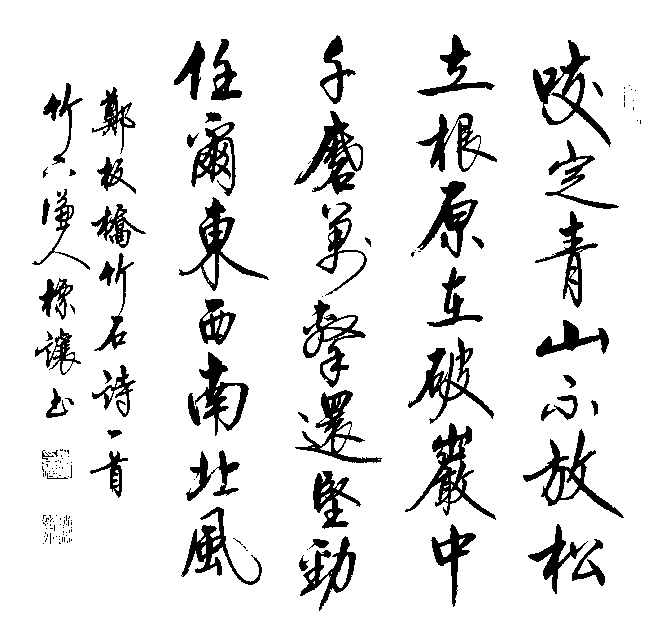 咬定青山不放松
立根原在破巖中
千磨萬擊還堅勁
任爾東西南北風
鄭板橋竹石詩一首
竹下謙人標讓书